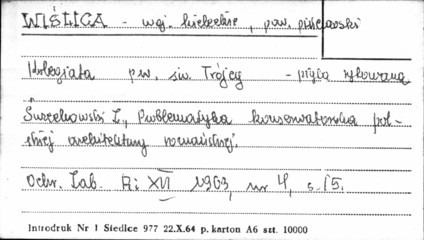 WIŚLICA - woj. kieleckie, pow. pińczowski
Kolegiata p.w. św. Trójcy - płyta rytowana
Świechowski Z., Problematyka konserwatorska pol-
skiej architektury romańskiej.
Ochr. Zab. R: XVI 1963, nr 4, s. 15.
Introdruk Nr 1 Siedlce 977 22.X.64 p. karton A6 szt. 10000